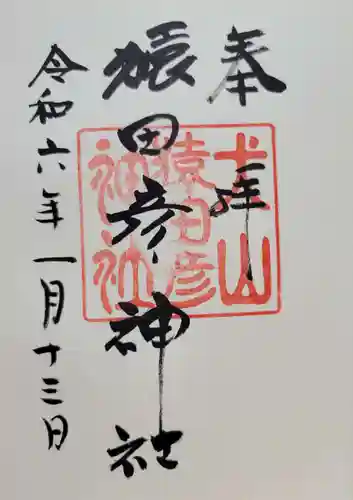 奉拝
犬山
猿田彦
神社
猿田彦神社
令和六年一月十三日